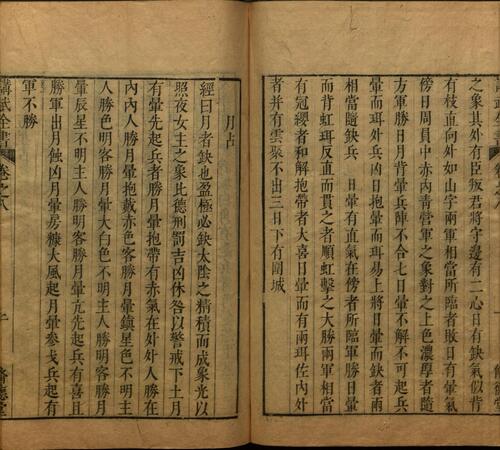 之象其外有臣叛君將守邊者有二心日有缺氣似背
有枝直向外如山字兩軍相當所臨者敗日有暈氣
傍日周員中赤內青營軍之象對之上色濃學者隨
方軍勝日月背暈兵陣不合七日暈不解不可起兵
暈而珥外兵凶日抱暈而珥易上將日暈而缺者兩
相當隨缺兵 日暈有直氣在傍者所臨軍勝日暈
而背虹珥反直而貫之者順虹擊之大勝兩軍相當
有冠纓者和解抱帶者大喜日暈而有兩珥在內外
者并有雲聚不出三日下有圍城
月占
經曰月者缺也盈極必缺太陰之精積而成象光以
照夜女主之象比德刑罰吉凶休咎以警戒下土月
有暈先起兵者勝月暈抱帶有赤氣在外外人勝在
內內人勝月暈抱戴赤色客勝月暈鎮星色不明主
人勝色明客勝月暈太白色不明主人勝明客勝月
暈辰星不明主人勝明客勝月暈亢先起兵有喜且
勝軍出月蝕凶月暈房糠大風起月暈參戈兵起有
軍不勝
講武全書 卷之八